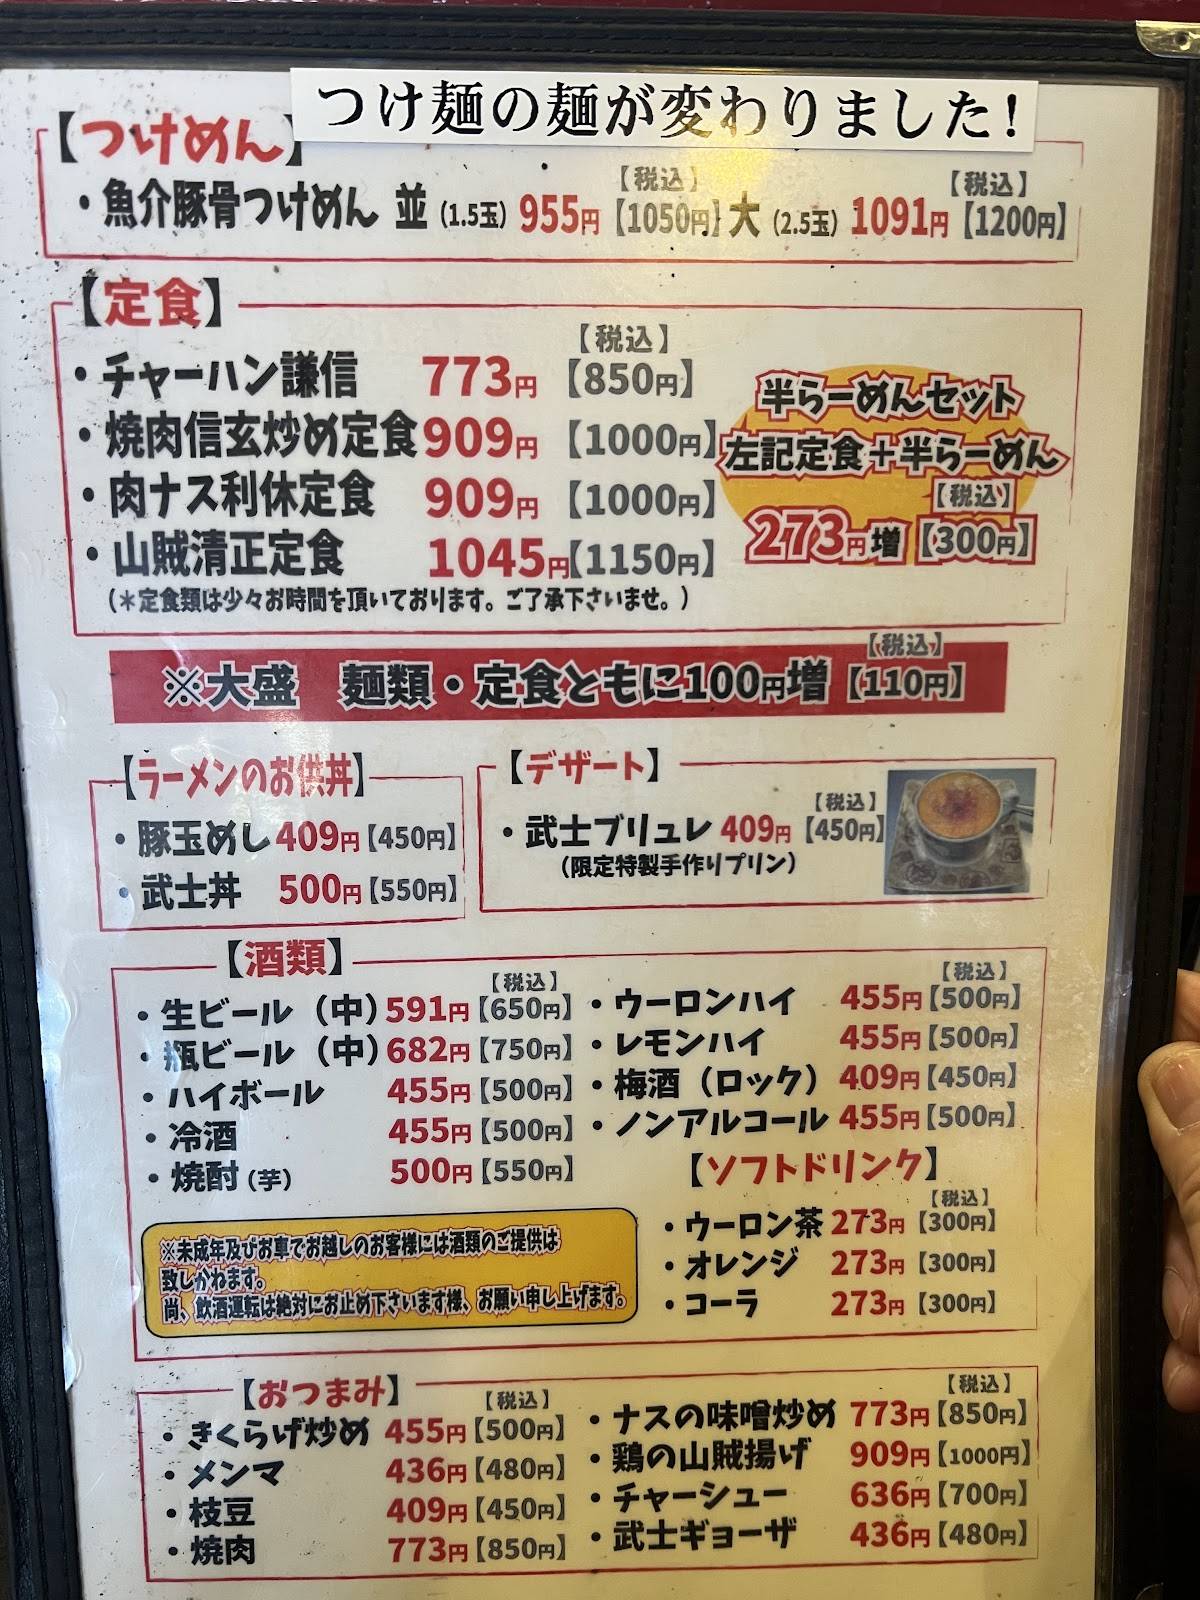 つけ麺の麺が変わりました!
【つけめん】
【税込】 【税込】
・魚介豚骨つけめん 並(1.5玉) 955円【1050円】大(2.5玉) 1091円【1200円】
【定食】
【税込】
・チャーハン謙信 773円【850円】
・焼肉信玄炒め定食 909円【1000円】
・肉ナス利休定食 909円【1000円】
・山賊清正定食 1045円【1150円】
(*定食類は少々お時間を頂いております。ご了承下さいませ。)
半らーめんセット
左記定食+半らーめん
【税込】
273円増【300円】
【税込】
※大盛 麺類・定食ともに100円増【110円】
【ラーメンのお供丼】
【税込】
・豚玉めし 409円【450円】
・武士丼 500円【550円】
【デザート】
【税込】
・武士ブリュレ 409円【450円】
(限定特製手作りプリン)
【酒類】
【税込】
・生ビール(中) 591円【650円】
・瓶ビール(中) 682円【750円】
・ハイボール 455円【500円】
・冷酒 455円【500円】
・焼酎(芋) 500円【550円】
【税込】
・ウーロンハイ 455円【500円】
・レモンハイ 455円【500円】
・梅酒(ロック) 409円【450円】
・ノンアルコール 455円【500円】
【ソフトドリンク】
【税込】
・ウーロン茶 273円【300円】
・オレンジ 273円【300円】
・コーラ 273円【300円】
※未成年及びお車でお越しのお客様には酒類のご提供は
致しかねます。
尚、飲酒運転は絶対にお止め下さいます様、お願い申し上げます。
【おつまみ】
【税込】
・きくらげ炒め 455円【500円】
・メンマ 436円【480円】
・枝豆 409円【450円】
・焼肉 773円【850円】
【税込】
・ナスの味噌炒め 773円【850円】
・鶏の山賊揚げ 909円【1000円】
・チャーシュー 636円【700円】
・武士ギョーザ 436円【480円】